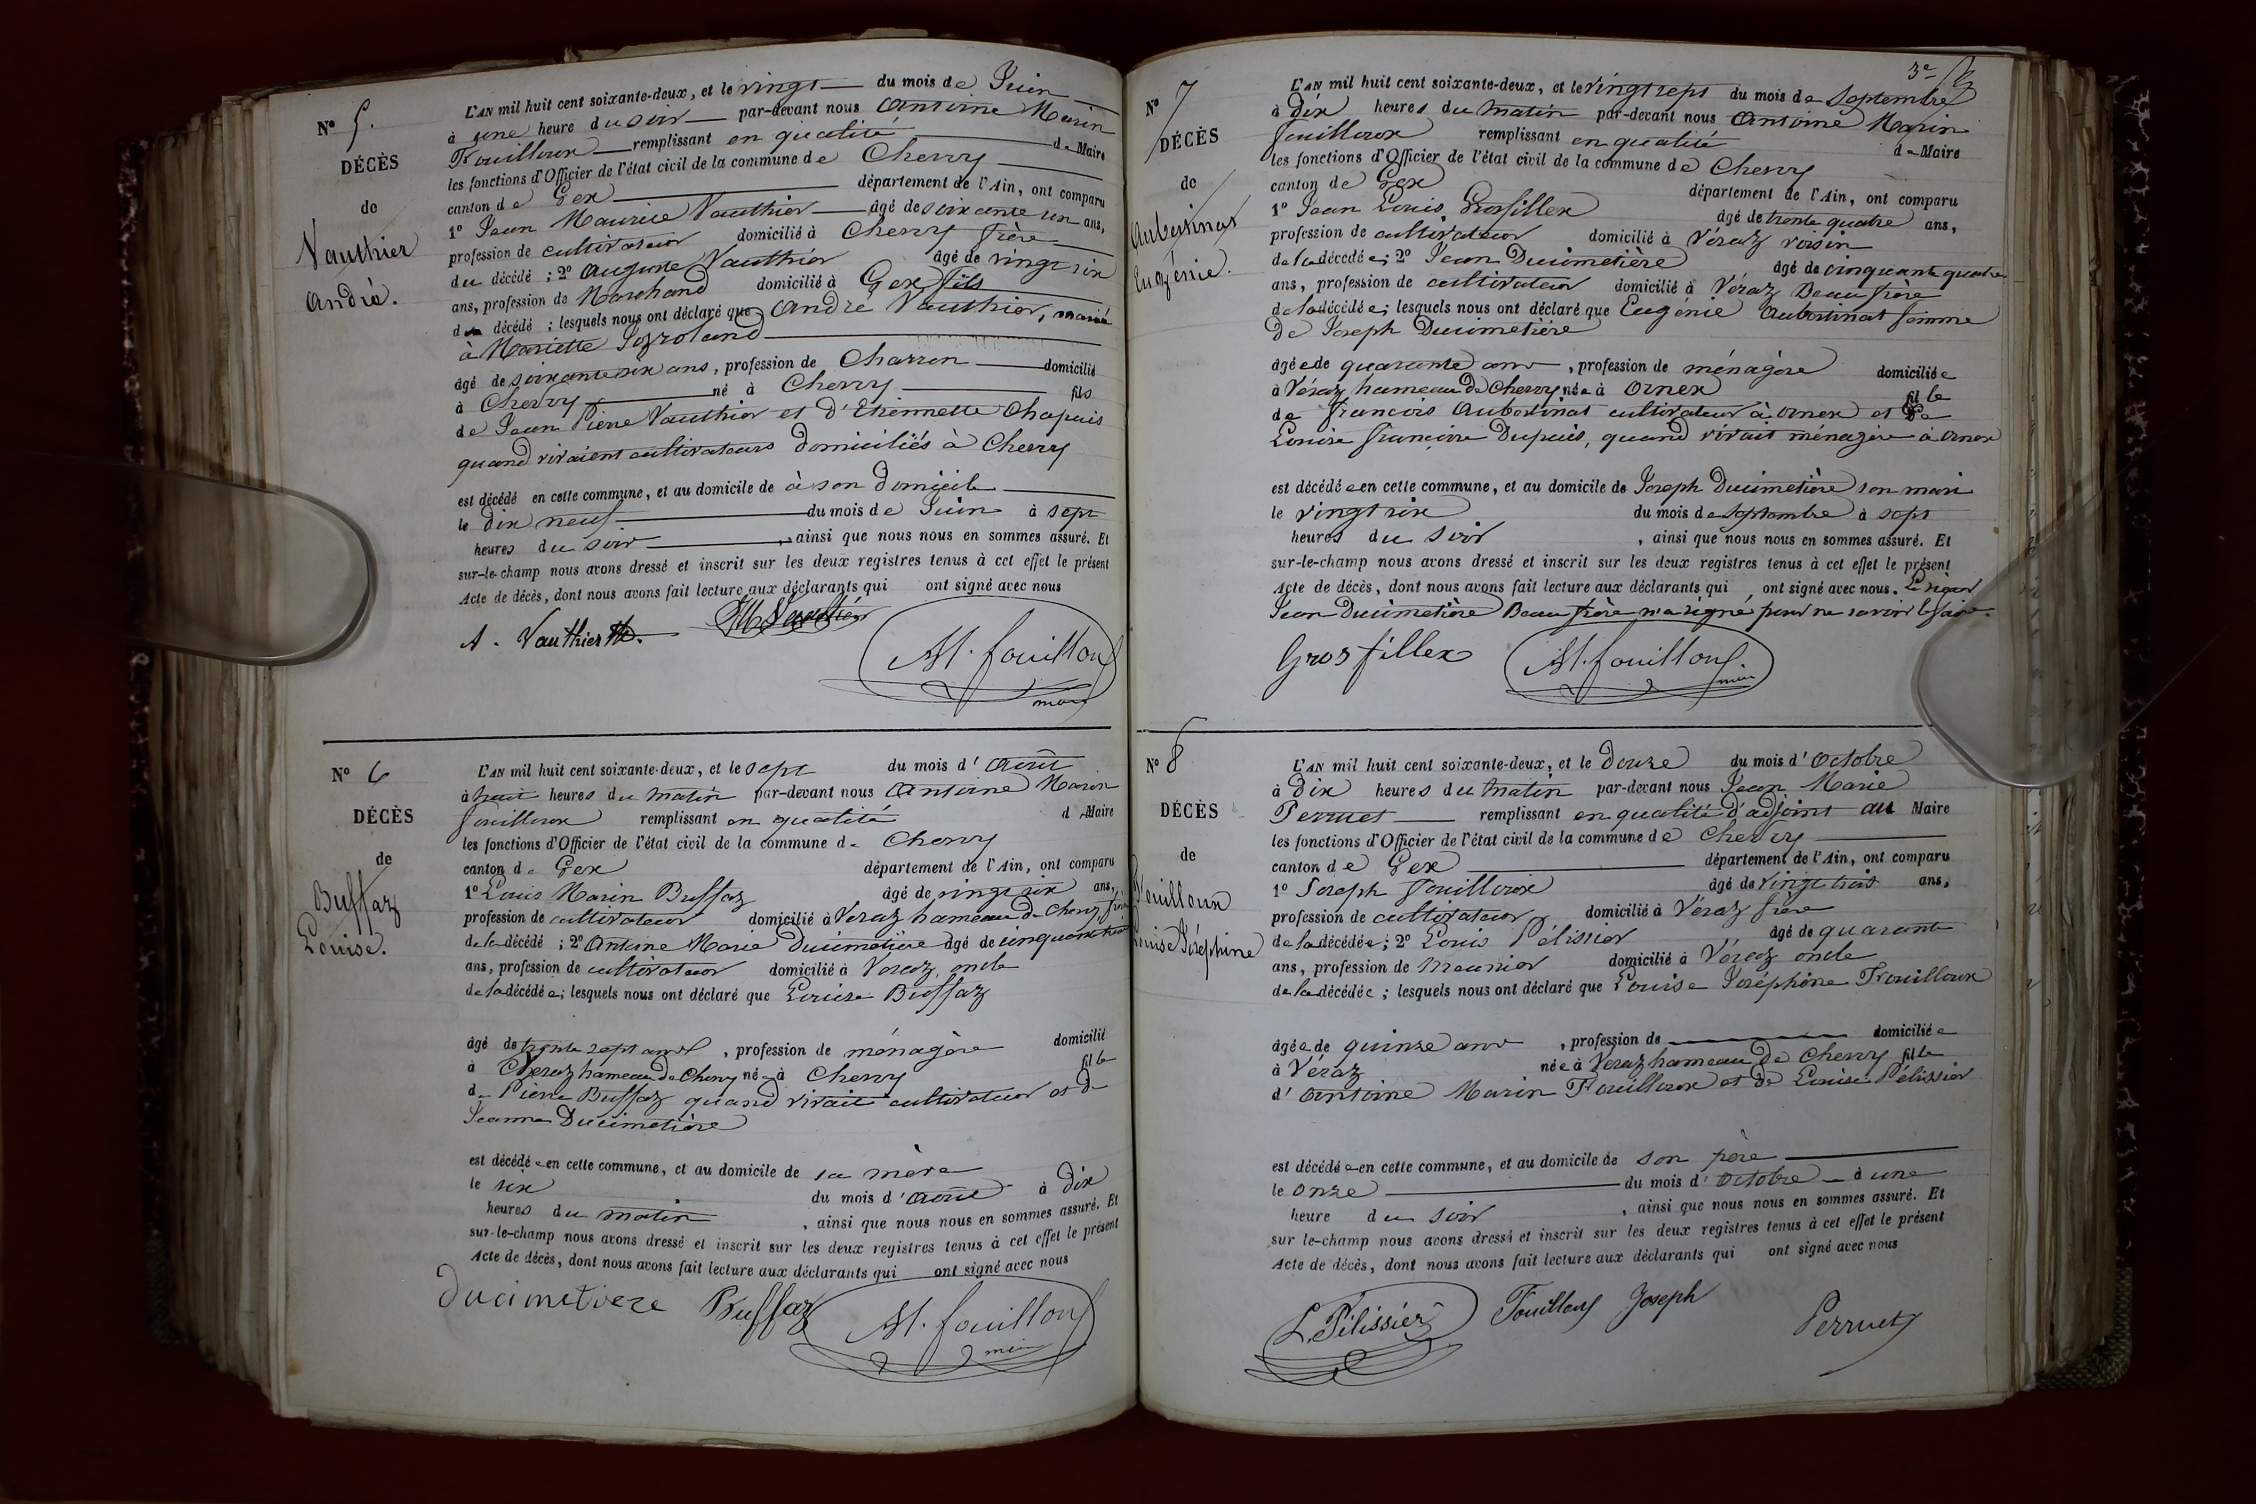 N° 5.
DÉCÈS
de
Vauthier
André.
L'AN mil huit cent soixante-deux, et le vingt du mois de Juin
à une heure du soir par-devant nous Antoine Marin
Fouilloux remplissant en qualité de Maire
les fonctions d'Officier de l'état civil de la commune de Chevry
canton de Gex département de l'Ain, ont comparu
1° Jean Maurice Vauthier âgé de soixante un ans,
profession de cultivateur domicilié à Chevry frère
du décédé ; 2° Auguste Vauthier âgé de vingt six
ans, profession de Marchand domicilié à Gex fils
du décédé ; lesquels nous ont déclaré que André Vauthier, marié
à Mariette
âgé de soixante six ans, profession de Charron domicilié
à Chevry né à Chevry fils
de Jean Pierre Vauthier et d'Etiennette Chapuis
quand vivaient cultivateurs domiciliés à Chevry
est décédé en cette commune, et au domicile de à son domicile
le dix neuf du mois de Juin à sept
heures du soir , ainsi que nous nous en sommes assuré. Et
sur-le-champ nous avons dressé et inscrit sur les deux registres tenus à cet effet le présent
Acte de décès, dont nous avons fait lecture aux déclarants qui ont signé avec nous
A. Vauthier JM Vauthier
AM. fouilloux
maire
N° 6
DÉCÈS
de
Buffaz
Louise.
L'AN mil huit cent soixante-deux, et le sept du mois d'Août
à huit heures du matin par-devant nous Antoine Marin
fouilloux remplissant en qualité de Maire
les fonctions d'Officier de l'état civil de la commune de Chevry
canton de Gex département de l'Ain, ont comparu
1° Louis Marin Buffaz âgé de vingt six ans,
profession de cultivateur domicilié à Véraz hameau de Chevry frère
de la décédé ; 2° Antoine Marie Ducimetière âgé de cinquante trois
ans, profession de cultivateur domicilié à Véraz, oncle
de la décédée ; lesquels nous ont déclaré que Louise Buffaz
âgé de trente sept ans , profession de ménagère domicilié
à Véraz hameau de Chevry née à Chevry fille
de Pierre Buffaz quand vivait cultivateur et de
Jeanne Ducimetière
est décédée en cette commune, et au domicile de sa mère
le six du mois d'août à dix
heures du matin , ainsi que nous nous en sommes assuré. Et
sur-le-champ nous avons dressé et inscrit sur les deux registres tenus à cet effet le présent
Acte de décès, dont nous avons fait lecture aux déclarants qui ont signé avec nous
Ducimetiere Buffaz AM. fouilloux
maire
3e
N° 7
DÉCÈS
de
Aubertinat
Eugénie.
L'AN mil huit cent soixante-deux, et le vingt sept du mois de Septembre
à dix heures du matin par-devant nous Antoine Marin
fouilloux remplissant en qualité de Maire
les fonctions d'Officier de l'état civil de la commune de Chevry
canton de Gex département de l'Ain, ont comparu
1° Jean Louis Grosfillex âgé de trente quatre ans,
profession de cultivateur domicilié à Véraz voisin
de la décédée ; 2° Jean Ducimetière âgé de cinquante quatre
ans, profession de cultivateur domicilié à Véraz Beau frère
de la décédée ; lesquels nous ont déclaré que Eugénie Aubertinat femme
de Joseph Ducimetière
âgée de quarante ans , profession de ménagère domiciliée
à Véraz hameau de Chevry née à Ornex fille
de françois Aubertinat cultivateur à Ornex et de
Louise françoise Dupuis, quand vivait ménagère à Ornex
est décédée en cette commune, et au domicile de Joseph Ducimetière son mari
le vingt six du mois de septembre à sept
heures du soir , ainsi que nous nous en sommes assuré. Et
sur-le-champ nous avons dressé et inscrit sur les deux registres tenus à cet effet le présent
Acte de décès, dont nous avons fait lecture aux déclarants qui ont signé avec nous. Le sieur
Jean Ducimetière Beau frère n'a signé pour ne savoir le faire.
Grosfillex AM. fouilloux.
maire
N° 8
DÉCÈS
de
Fouilloux
Louise Joséphine
L'AN mil huit cent soixante-deux, et le douze du mois d'Octobre
à dix heures du matin par-devant nous Jean Marie
Perruet remplissant en qualité d'adjoint au Maire
les fonctions d'Officier de l'état civil de la commune de Chevry
canton de Gex département de l'Ain, ont comparu
1° Joseph fouilloux âgé de vingt trois ans,
profession de cultivateur domicilié à Véraz frère
de la décédée ; 2° Louis Pélissier âgé de quarante
ans, profession de meunier domicilié à Véraz oncle
de la décédée ; lesquels nous ont déclaré que Louise Joséphine Fouilloux
âgée de quinze ans , profession de domiciliée
à Véraz née à Véraz hameau de Chevry fille
d'Antoine Marin Fouilloux et de Louise Pélissier
est décédée en cette commune, et au domicile de son père
le onze du mois d'octobre à une
heure du soir , ainsi que nous nous en sommes assuré. Et
sur le-champ nous avons dressé et inscrit sur les deux registres tenus à cet effet le présent
Acte de décès, dont nous avons fait lecture aux déclarants qui ont signé avec nous
L. Pélissier Fouilloux Joseph Perruet